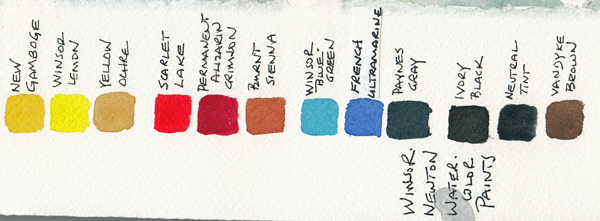 NEW
GAMBOGE
WINSOR
LEMON
YELLOW
OCHRE
SCARLET
LAKE
PERMANENT
ALIZARIN
CRIMSON
BURNT
SIENNA
WINSOR
BLUE-
GREEN
FRENCH
ULTRAMARINE
PAYNES
GRAY
IVORY
BLACK
NEUTRAL
TINT
VANDYKE
BROWN
WINSOR.
NEWTON
WATER.
COLOR
PAINTS